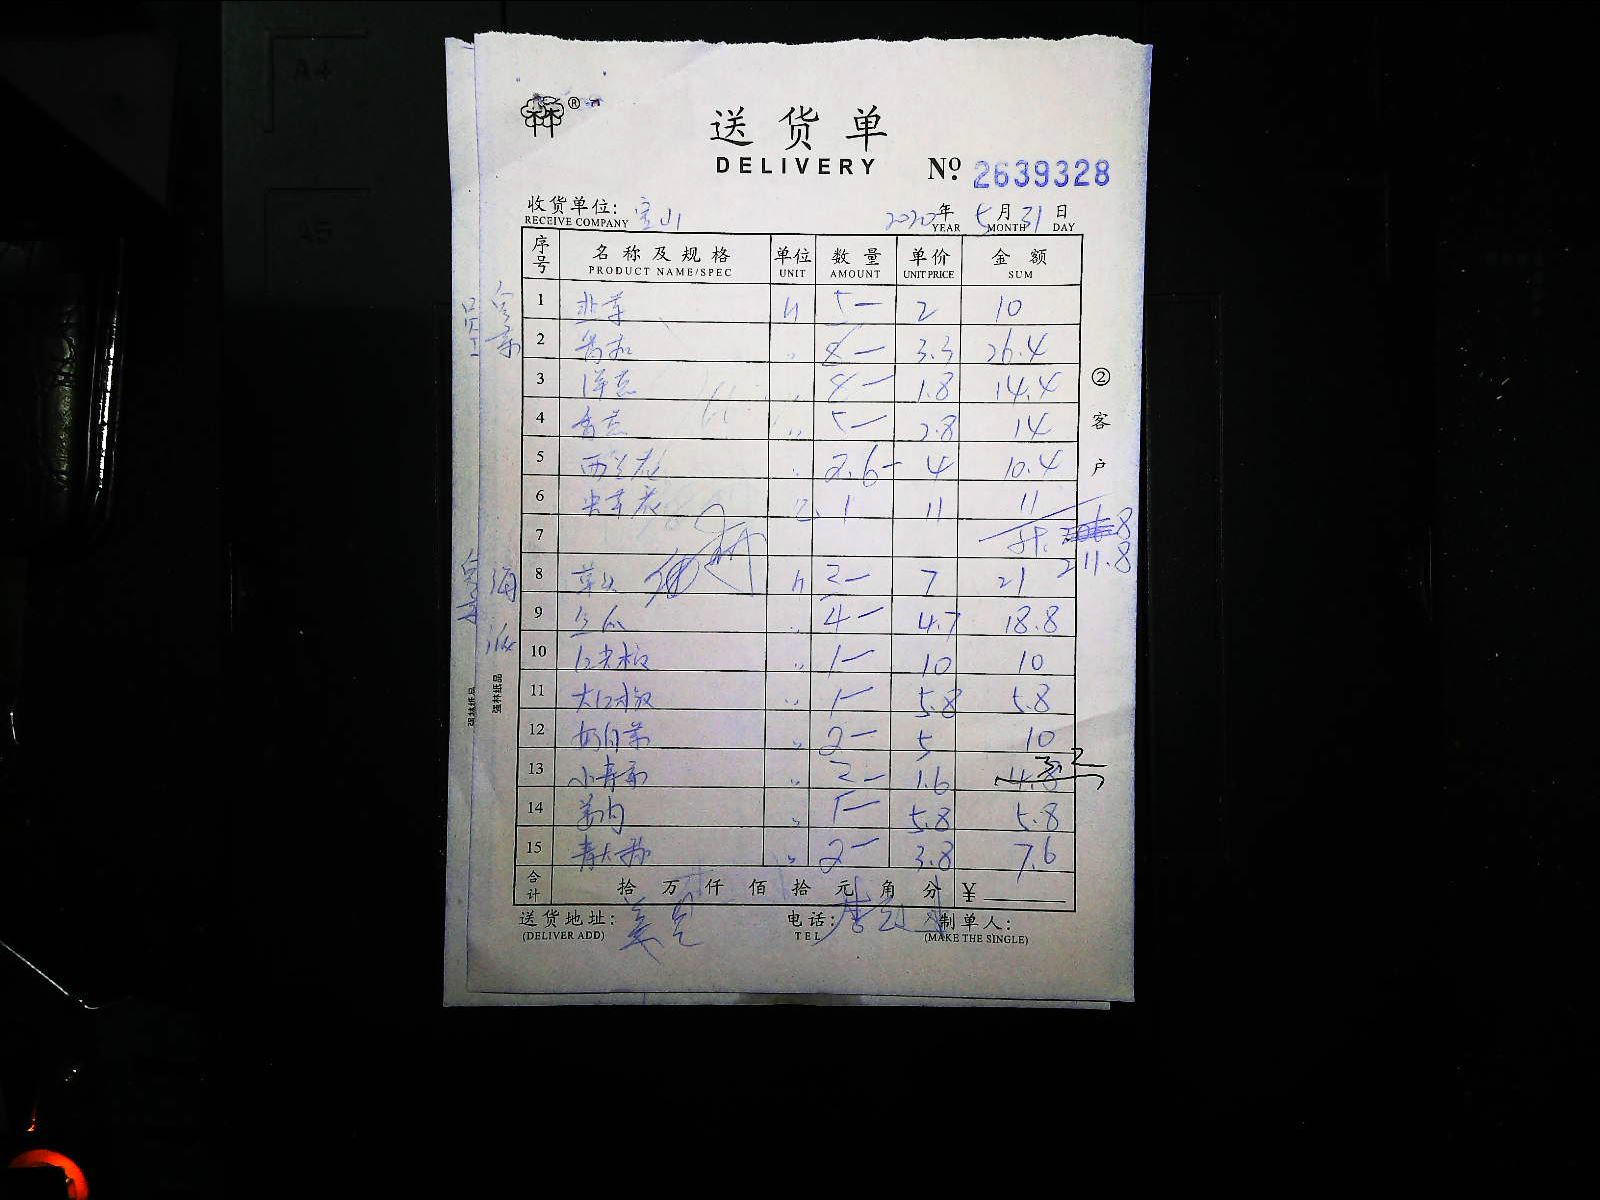 送货单
DELIVERY
№ 2639328
收货单位: 宝山 2020年 5月 31日
RECEIVE COMPANY YEAR MONTH DAY
序号 名称及规格 单位 数量 单价 金额
PRODUCT NAME/SPEC UNIT AMOUNT UNIT PRICE SUM
1 韭芽 5- 2 10
2 香茄 8- 3.3 26.4
3 洋葱 8- 1.8 14.4
4 香葱 5- 2.8 14
5 西兰花 2.6- 4 10.4
6 1 11 11
7
211.8
8 草头 3- 7 21
9 4- 4.7 18.8
10 红尖椒 1- 10 10
11 大红椒 1- 5.8 5.8
12 奶白菜 2- 5 10
13 小青菜 2- 1.6 3.2
14 姜肉 1- 5.8 5.8
15 青大椒 2- 3.8 7.6
合计 拾 万 仟 佰 拾 元 角 分 ¥
送货地址: 电话: 制单人:
(DELIVER ADD) TEL (MAKE THE SINGLE)
② 客户
强林纸品
强林纸品